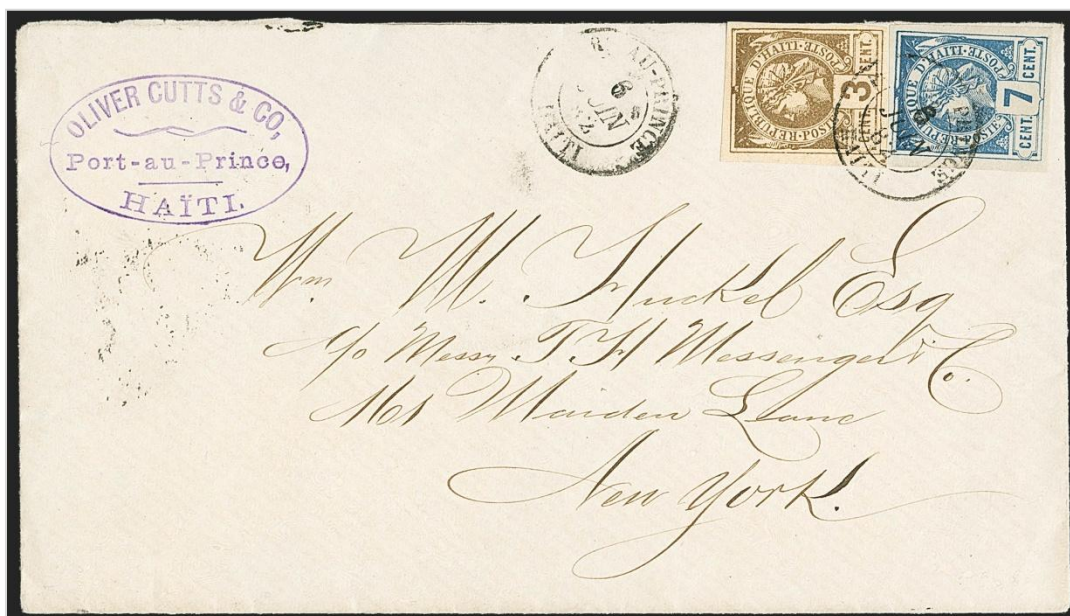 OLIVER CUTTS & CO,
Port-au-Prince,
HAÏTI.
AU-PRINCE
6
JUIN
82
HAITI
REPUBLIQUE D'HAITI·POSTE
P·POSTE
3
CENT.
REPUBLIQUE D'HAITI·POSTE
7
CENT.
CENT.
JUIN
Wm W. Huckel Esq
c/o Messrs. T. H Messenger & Co.
161 Maiden Lane
New York.